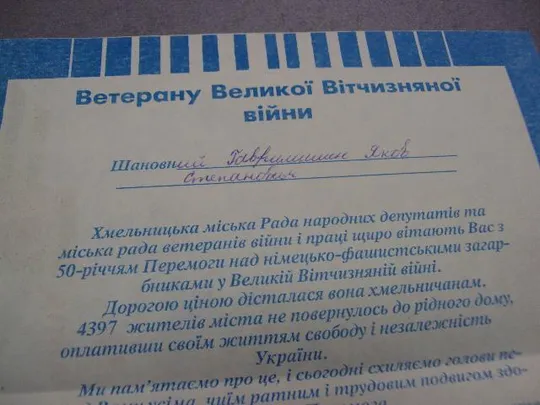 Ветерану Великої Вітчизняної
війни
Шановний Гаврилишин Яков
Степанович
Хмельницька міська Рада народних депутатів та
міська рада ветеранів війни і праці щиро вітають Вас з
50-річчям Перемоги над німецько-фашистськими загар-
бниками у Великій Вітчизняній війні.
Дорогою ціною дісталася вона хмельничанам.
4397 жителів міста не повернулось до рідного дому,
оплативши своїм життям свободу і незалежність
України.
Ми пам'ятаємо про це, і сьогодні схиляємо голови пе-
чиїм ратним і трудовим подвигом здо-